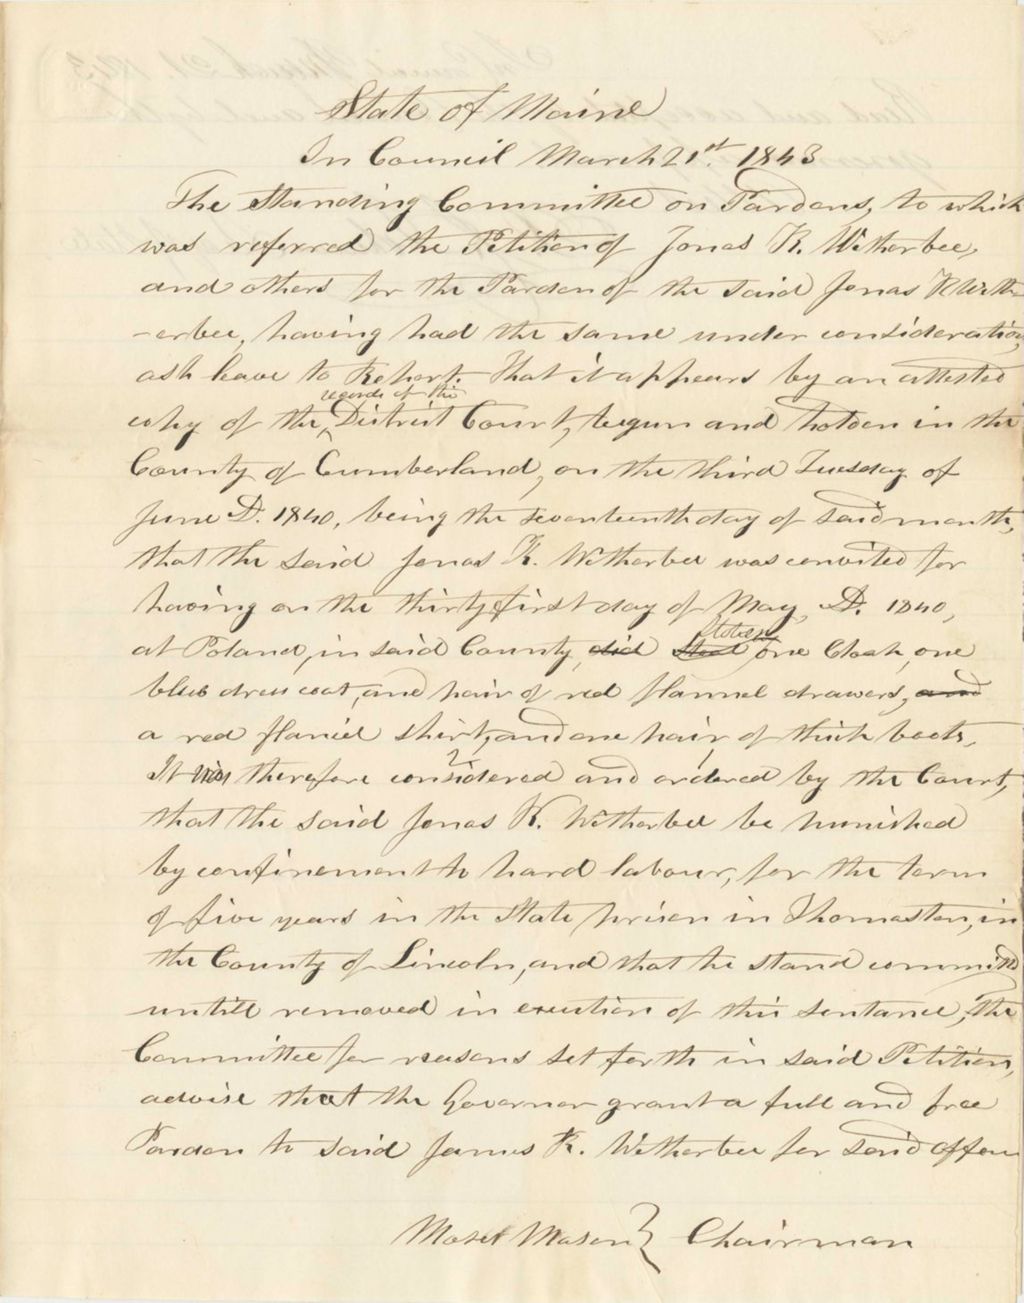 State of Maine
In Council March 21st. 1843
The Standing Committee on Pardons, to which
was referred the Petition of Jonas K. Witherbee,
and others for the Pardon of the said Jonas K With
-erbee, having had the same under consideration,
ask leave to Report. That it appears by an attested
records of the
copy of the District Court, begun and holden in the
County of Cumberland, on the third Tuesday of
June D. 1840, being the seventeenth day of said month,
that the said Jonas K. Witherbee was convited for
having on the thirty first day of May, D. 1840,
stolen
at Poland, in said County, did steal one Cloak, one
blue dress coat, one pair of red flannel drawers, and
a red flaniel shirt, and one pair of thick boots,
It was therefore considered and ordered by the Court,
that the said Jonas K. Witherbee be punished
by confinement to hard labour, for the term
of five years in the State prison in Thomaston, in
the County of Lincoln, and that he stand committd
untill removed in exution of this sentance, the
Committee for reasons set forth in said Petition,
advise that the Governor grant a full and free
Pardon to said James K. Witherbee for said offen
Moses Mason } Chairman